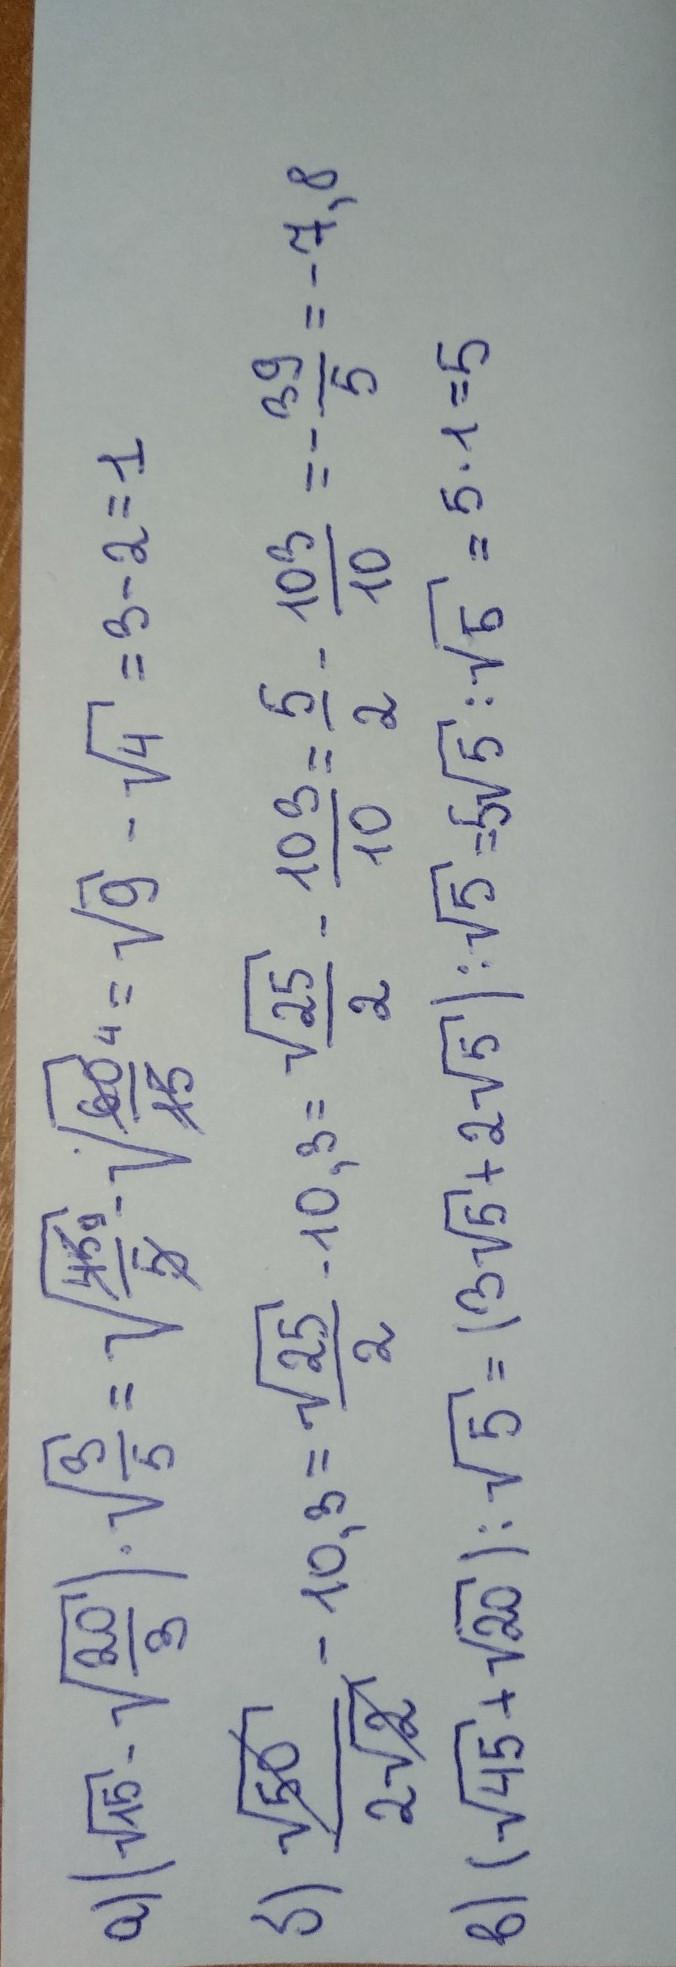 а) (√15 - √20/3) · √3/5 = √45/5 - √60/15 = √9 - √4 = 3 - 2 = 1
б) √50/2√2 - 10,3 = √25/2 - 10,3 = √25/2 - 103/10 = 5/2 - 103/10 = -39/5 = -7,8
в) (√45 + √20) : √5 = (3√5 + 2√5) : √5 = 5√5 : √5 = 5 · 1 = 5